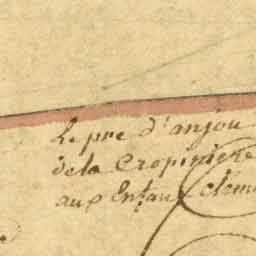 Le pre d'anjou
dela Cropiniere
aux Enfans